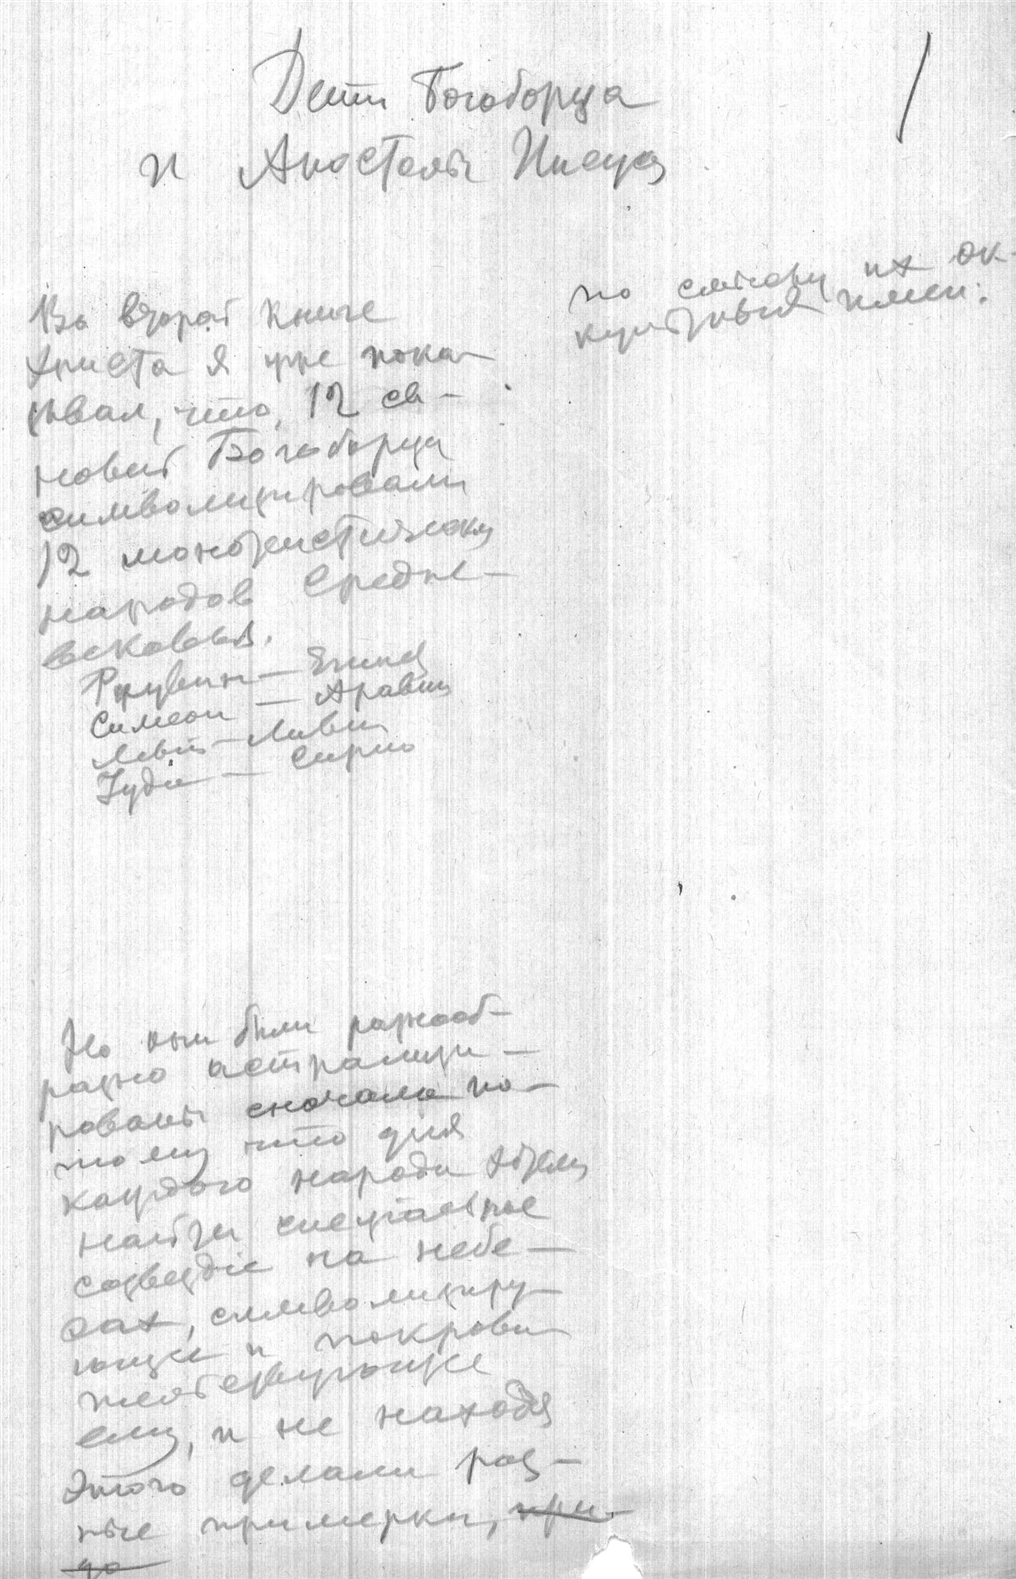 Дети Богоборца
и Апостолы Иисуса
по смыслу их ок-
культовых имен:
Во второй книге
Христа я уже пока-
зывал, что 12 сы-
новей Богоборца
символизировали
12 монотеистических
народов Средне-
вековья.
Рувим — Египет
Симеон — Аравия
Левий — Ливия
Иуда — Сирию
Но они были разнооб-
разно астрализи-
рованы сначала по-
тому что для
каждого народа хотели
найти специальное
созвездие на небе-
сах, символизиру-
ющее и покрови-
тельствующее
ему, и не находя
этого делали раз-
ные примерки, при-